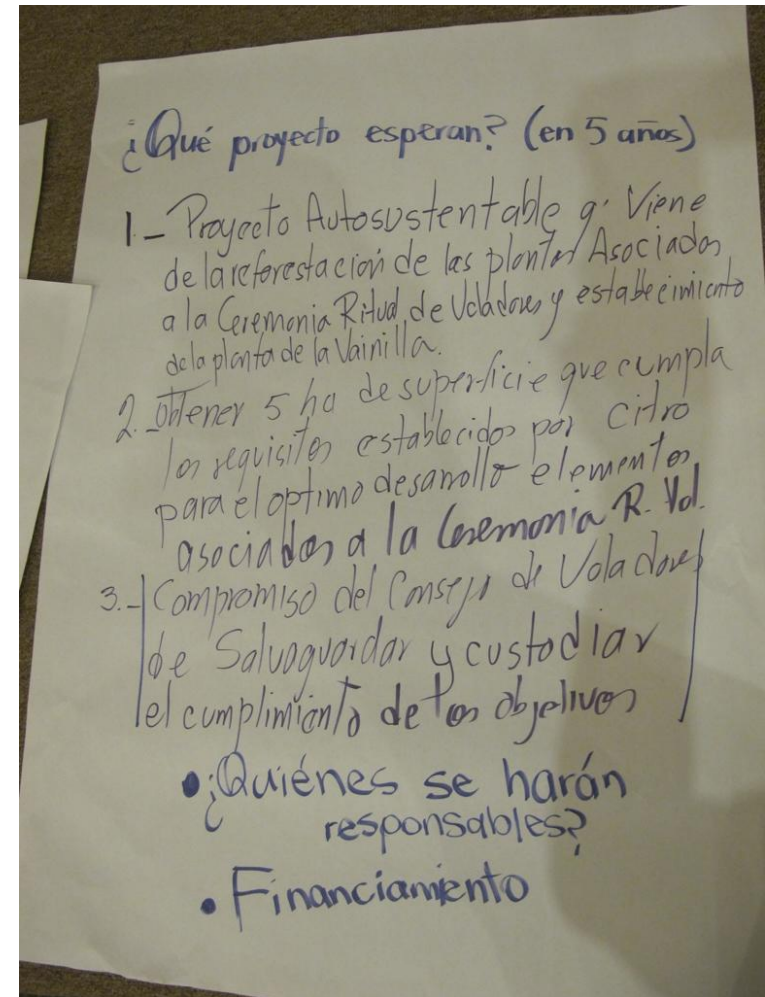 ¿Qué proyecto esperan? (en 5 años)
1.- Proyecto Autosustentable q' Viene
de la reforestación de las plantas Asociados
a la Ceremonia Ritual de Voladores y establecimiento
de la planta de la Vainilla.
2.- Obtener 5 ha de superficie que cumpla
los requisitos establecidos por citro
para el optimo desarrollo elementos
asociados a la Ceremonia R. Vol.
3.- Compromiso del Consejo de Voladores
de Salvaguardar y custodiar
el cumplimiento de los objetivos
• ¿Quiénes se harán
responsables?
• Financiamiento